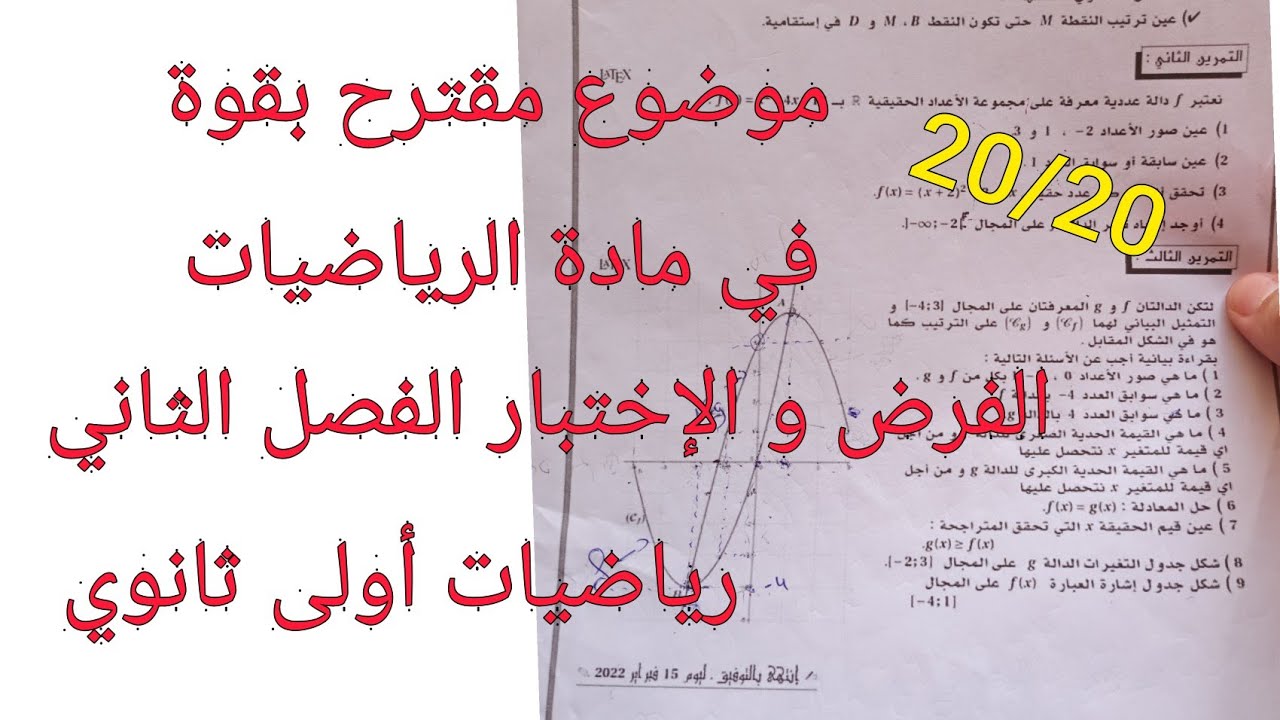 موضوع مقترح بقوة
في مادة الرياضيات
الفرض و الإختبار الفصل الثاني
رياضيات أولى ثانوي
20/20
✓) عين ترتيب النقطة M حتى تكون النقط M ، B و D في إستقامية.
التمرين الثاني :
نعتبر f دالة عددية معرفة على مجموعة الأعداد الحقيقية ℝ بـ
1) عين صور الأعداد 2- ، 1 و 3
2) عين سابقة أو سوابق 1.
3) تحقق عدد f(x) = (x+2)²
4) أوجد على المجال ]-∞;-2].
التمرين الثالث :
لتكن الدالتان f و g المعرفتان على المجال [-4;3] و
التمثيل البياني لهما (𝒞f) و (𝒞g) على الترتيب كما
هو في الشكل المقابل .
بقراءة بيانية أجب عن الأسئلة التالية :
1 ) ما هي صور الأعداد 0 ، لكل من f و g .
2 ) ما هي سوابق العدد 4-
3 ) ما هي سوابق العدد 4 g
4 ) ما هي القيمة الحدية من أجل
اي قيمة للمتغير x نتحصل عليها
5 ) ما هي القيمة الحدية الكبرى للدالة g و من أجل
اي قيمة للمتغير x نتحصل عليها
6 ) حل المعادلة : f(x) = g(x).
7 ) عين قيم الحقيقة x التي تحقق المتراجحة :
g(x) ≥ f(x).
8 ) شكل جدول التغيرات الدالة g على المجال [-2;3].
9 ) شكل جدول إشارة العبارة f(x) على المجال
[-4;1]
A
(Cf)
-4
إنتهى بالتوفيق . ليوم 15 فبراير 2022